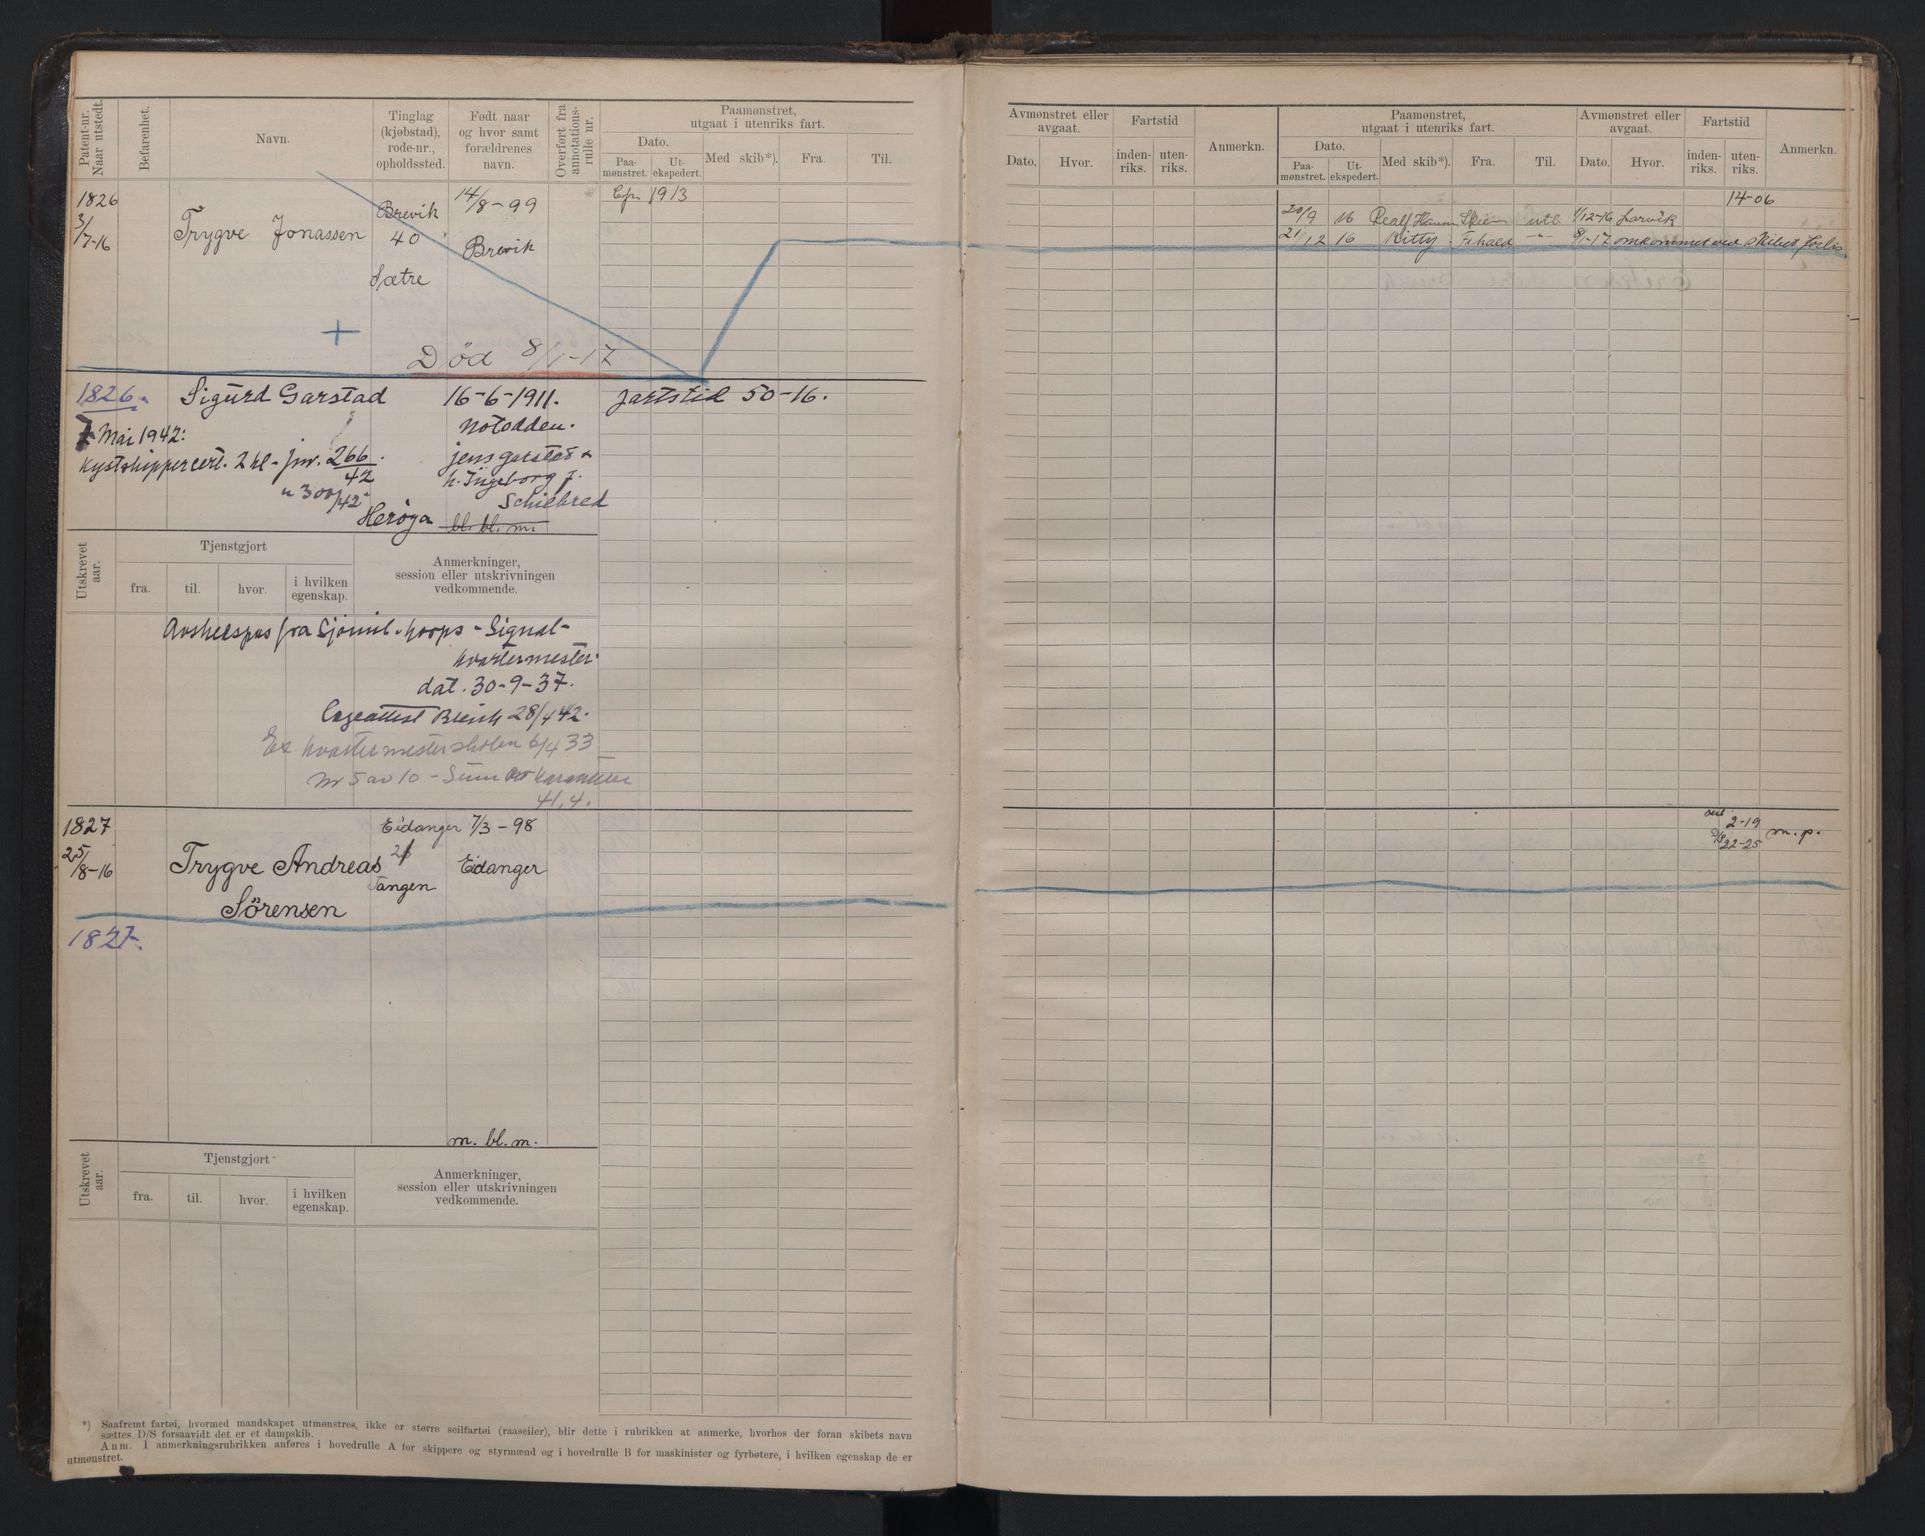 Patent-nr. Naar utstedt.
Befarenhet.
Navn.
Tinglag (kjøbstad), rode-nr., opholdssted.
Født naar og hvor samt forældrenes navn.
Overført fra annotations-rulle nr.
Paamønstret, utgaat i utenriks fart.
Dato.
Paa-mønstret.
Ut-ekspedert.
Med skib*).
Fra.
Til.
1826
3/7-16
Trygve Jonassen
Brevik
40
Sætre
14/8-99
Brevik
1913
+
Død 8/1-17
1826
Sigurd Garstad
16-6-1911.
Notodden.
Jens Garstad &
h. Ingeborg J.
Schiebred
bl. bl. m.
fartstid 50-16.
7 Mai 1942:
Kystskippercert. 2 kl - jnr. 266/42
" 300/42
Herøya
Utskrevet aar.
Tjenstgjort
fra.
til.
hvor.
i hvilken egenskap.
Anmerkninger, session eller utskrivningen vedkommende.
Avskedspas fra Sjømil. korps - Signal-
kvartermester.
dat. 30-9-37.
Legeattest Brevik 28/4 42.
Ex. kvartermesterskolen 6/4 33
Nr 5 av 10 - Sum karakterer
41,4.
1827
25/8-16
Trygve Andreas
Sörensen
Eidanger
Tangen
7/3-98
Eidanger
1827.
m. bl. m.
Utskrevet aar.
Tjenstgjort
fra.
til.
hvor.
i hvilken egenskap.
Anmerkninger, session eller utskrivningen vedkommende.
*) Saafremt fartøi, hvormed mandskapet utmønstres, ikke er større seilfartøi (raaseiler), blir dette i rubrikken at anmerke, hvorhos der foran skibets navn
sættes D/S forsaavidt det er et dampskib.
Anm. I anmerkningsrubrikken anføres i hovedrulle A for skippere og styrmænd og i hovedrulle B for maskinister og fyrbøtere, i hvilken egenskap de er
utmønstret.
Avmønstret eller avgaat.
Dato.
Hvor.
Fartstid
inden-riks.
uten-riks.
Anmerkn.
Paamønstret, utgaat i utenriks fart.
Dato.
Paa-mønstret.
Ut-ekspedert.
Med skib*).
Fra.
Til.
Avmønstret eller avgaat.
Dato.
Hvor.
Fartstid
inden-riks.
uten-riks.
Anmerkn.
14-06
20/9 16 Skien utl 1/12-16 Larvik
21/12 16 Kitty F.hald -"- 8/1-17 omkommet ved skibets forlis
seil 2-19
D/S 22-25 m.p.